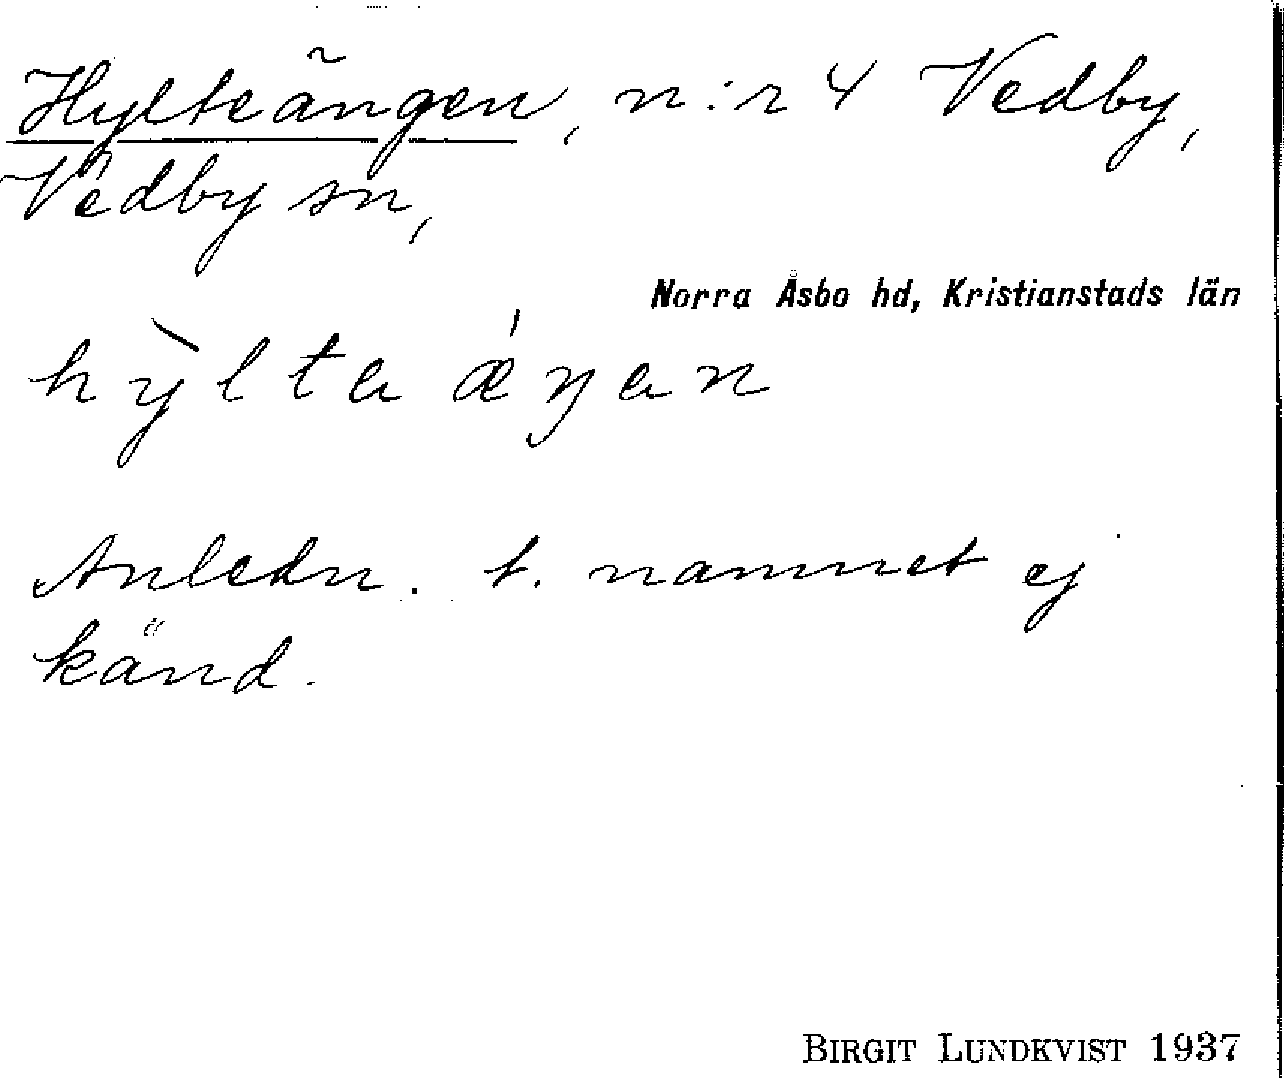 Hylteängen, n:r 4 Vedby,
Vedby sn,
Norra Åsbo hd, Kristianstads län
hỳlta ǽŋan
Anledn. t. namnet ej
känd.
BIRGIT LUNDKVIST 1937